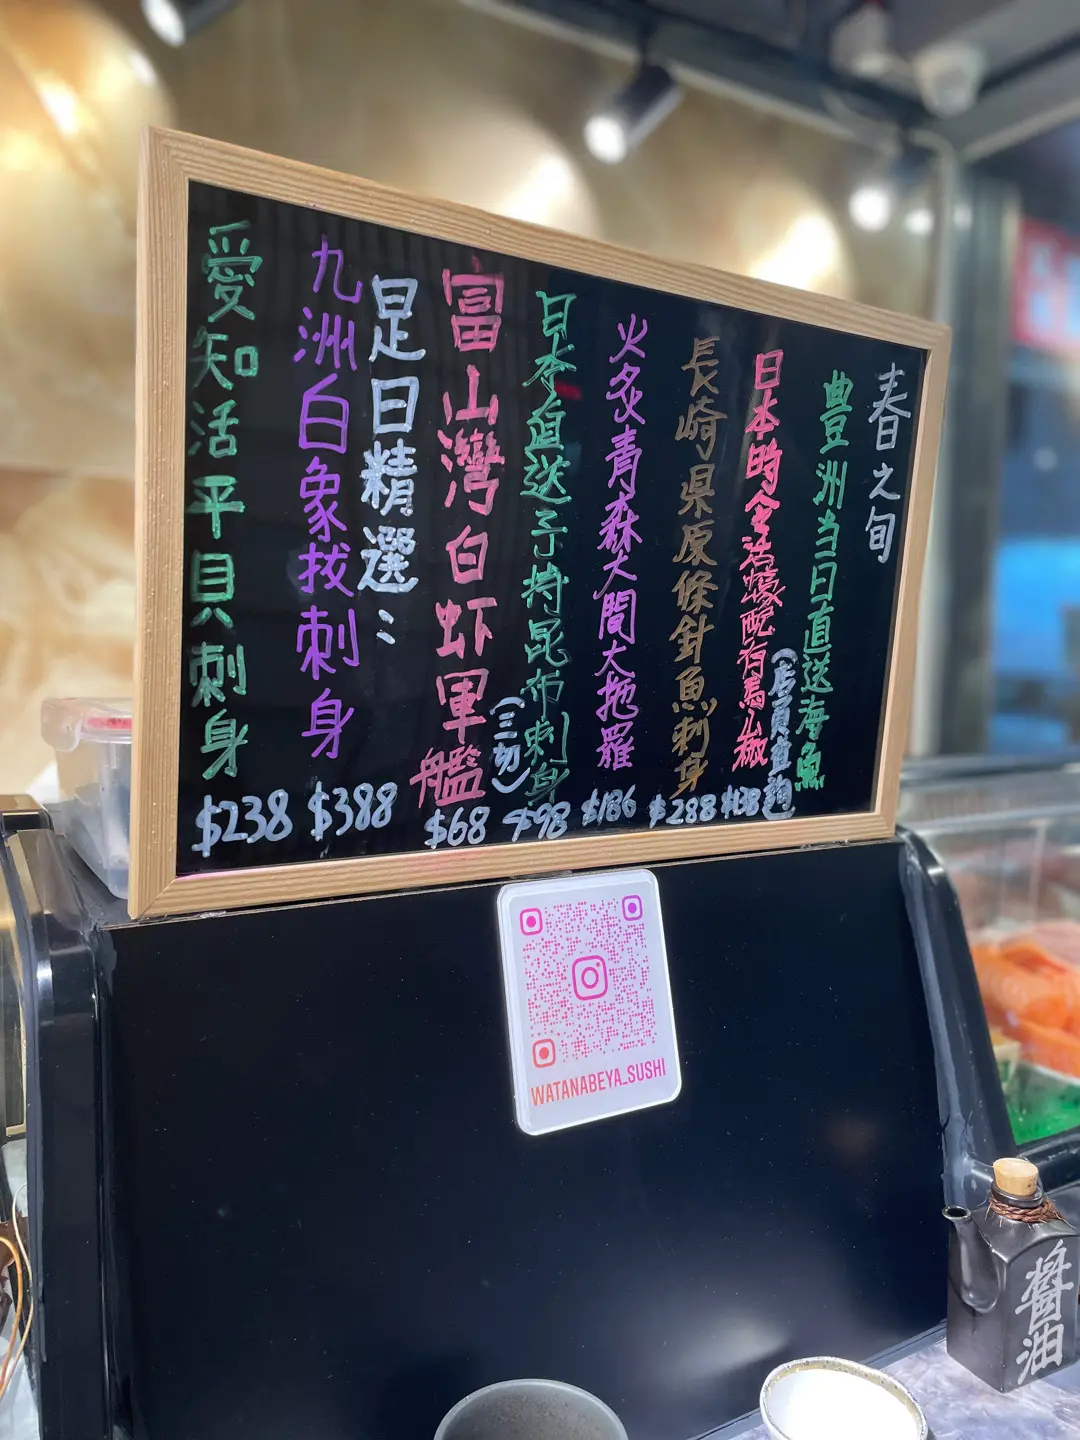 春之旬
豊洲当日直送海魚
日本時令活蠔配有馬山椒
(店員查詢)
$138
長崎県原條針魚刺身
$288
火炙青森大間大拖羅
$186
日本直送子持昆布刺身
(三切)
$98
富山灣白虾軍艦
$68
是日精選：
九洲白象找刺身
$388
愛知活平貝刺身
$238
WATANABEYA_SUSHI
醬油